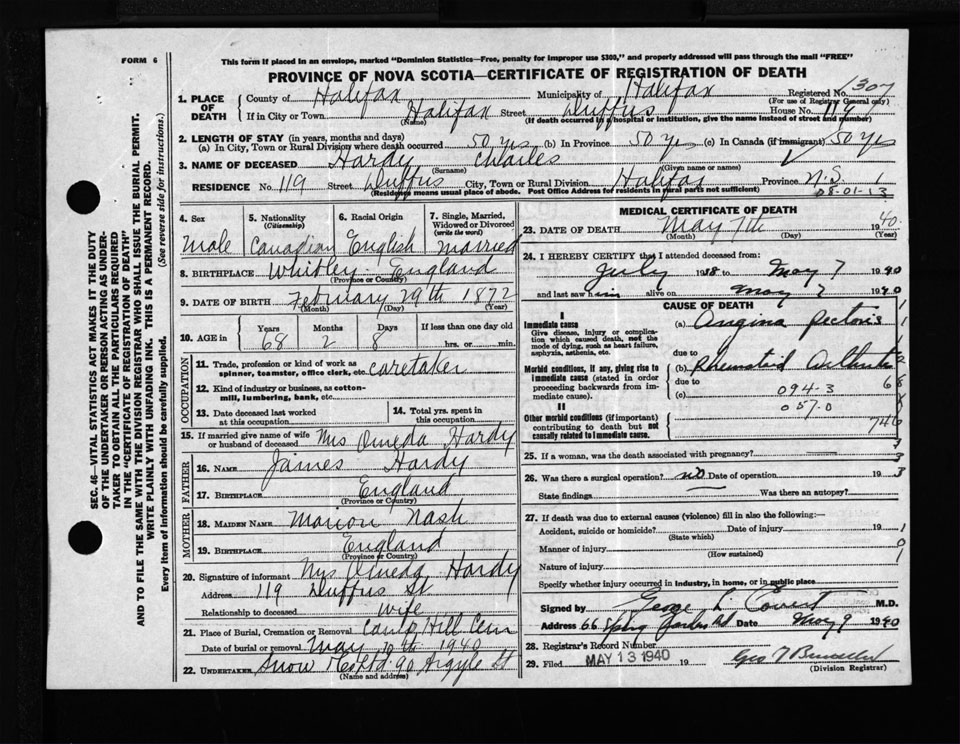 FORM 6
This form if placed in an envelope, marked "Dominion Statistics—Free, penalty for improper use $300," and properly addressed will pass through the mail "FREE"
PROVINCE OF NOVA SCOTIA—CERTIFICATE OF REGISTRATION OF DEATH
1. PLACE OF DEATH County of Halifax Municipality of Halifax Registered No. 1307
(For use of Registrar General only)
If in City or Town Halifax Street Duffus House No. 119
(Name) (If death occurred in a hospital or institution, give the name instead of street and number)
2. LENGTH OF STAY (in years, months and days)
(a) In City, Town or Rural Division where death occurred 50 yrs (b) In Province 50 yrs (c) In Canada (if immigrant) 50 yrs
3. NAME OF DECEASED Hardy Charles
(Surname) (Given name or names)
RESIDENCE No. 119 Street Duffus City, Town or Rural Division Halifax Province N.S.
(Residence means usual place of abode. Post Office Address for residents in rural parts not sufficient) 08-01-13
4. Sex Male
5. Nationality (Citizenship) Canadian
6. Racial Origin English
7. Single, Married, Widowed or Divorced (write the word) Married
8. BIRTHPLACE Whitley England
(Province or Country)
9. DATE OF BIRTH February 29th 1872
(Month) (Day) (Year)
10. AGE in Years 68 Months 2 Days 8 If less than one day old hrs. or min.
OCCUPATION
11. Trade, profession or kind of work as spinner, teamster, office clerk, etc. caretaker
12. Kind of industry or business, as cotton-mill, lumbering, bank, etc.
13. Date deceased last worked at this occupation
14. Total yrs. spent in this occupation
15. If married give name of wife or husband of deceased Mrs Omeda Hardy
FATHER
16. NAME James Hardy
17. BIRTHPLACE England
(Province or Country)
MOTHER
18. MAIDEN NAME Marion Nash
19. BIRTHPLACE England
(Province or Country)
20. Signature of informant Mrs Omeda Hardy
Address 119 Duffus St
Relationship to deceased wife
21. Place of Burial, Cremation or Removal Hill Cem
Date of burial or removal May 10th 1940
22. UNDERTAKER Snow & Co Ltd 90 Argyle St
(Name and address)
MEDICAL CERTIFICATE OF DEATH
23. DATE OF DEATH May 7th 1940
(Month) (Day) (Year)
24. I HEREBY CERTIFY that I attended deceased from:
July 1938 to May 7 1940
and last saw him alive on May 7 1940
CAUSE OF DEATH
I
Immediate cause (a) Angina Pectoris
Give disease, injury or complication which caused death, not the mode of dying, such as heart failure, asphyxia, asthenia, etc.
due to
Morbid conditions, if any, giving rise to immediate cause (stated in order proceeding backwards from immediate cause). (b) Rheumatoid Arthritis
due to
(c) 094-3
057-0
II
Other morbid conditions (if important) contributing to death but not causally related to immediate cause.
746
25. If a woman, was the death associated with pregnancy?
26. Was there a surgical operation? no Date of operation 19
State findings Was there an autopsy?
27. If death was due to external causes (violence) fill in also the following:—
Accident, suicide or homicide? Date of injury 19
(State which)
Manner of injury
(How sustained)
Nature of injury
Specify whether injury occurred in industry, in home, or in public place
Signed by George L. M.D.
Address 66 Spring Garden Rd Date May 9 1940
28. Registrar's Record Number
29. Filed MAY 13 1940 19 Geo
(Division Registrar)
SEC. 46—VITAL STATISTICS ACT MAKES IT THE DUTY
OF THE UNDERTAKER OR PERSON ACTING AS UNDER-
TAKER TO OBTAIN ALL THE PARTICULARS REQUIRED
IN THE "CERTIFICATE OF REGISTRATION OF DEATH"
AND TO FILE THE SAME WITH THE DIVISION REGISTRAR WHO SHALL ISSUE THE BURIAL PERMIT.
WRITE PLAINLY WITH UNFADING INK. THIS IS A PERMANENT RECORD.
Every item of information should be carefully supplied. (See reverse side for instructions.)